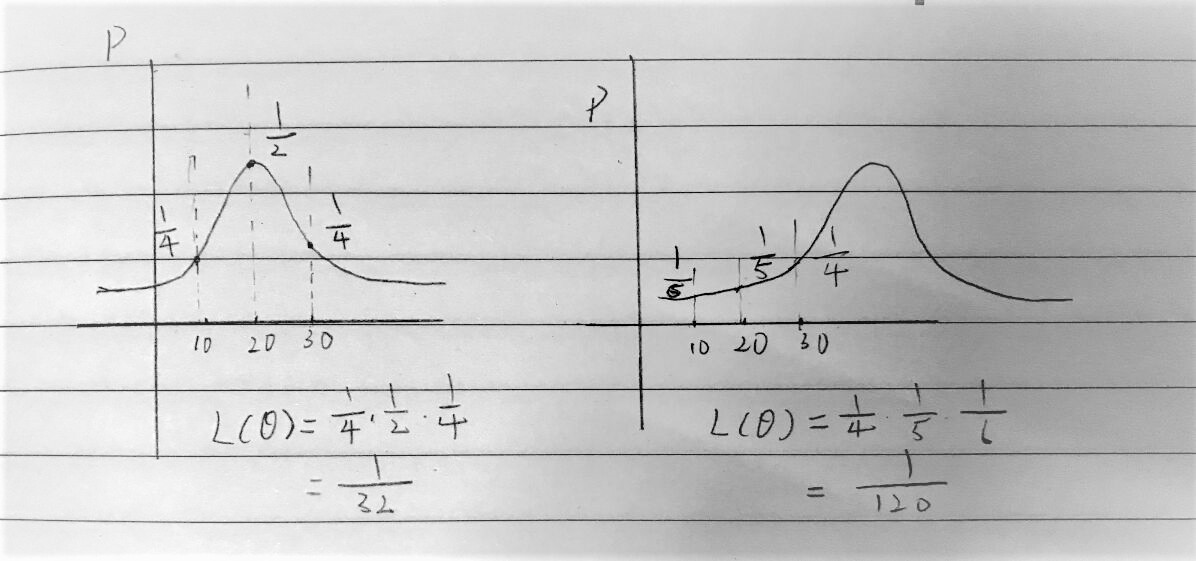 P
1/2
1/4
1/4
10 20 30
L(θ) = 1/4 · 1/2 · 1/4
= 1/32
P
1/6
1/5
1/4
10 20 30
L(θ) = 1/4 · 1/5 · 1/6
= 1/120